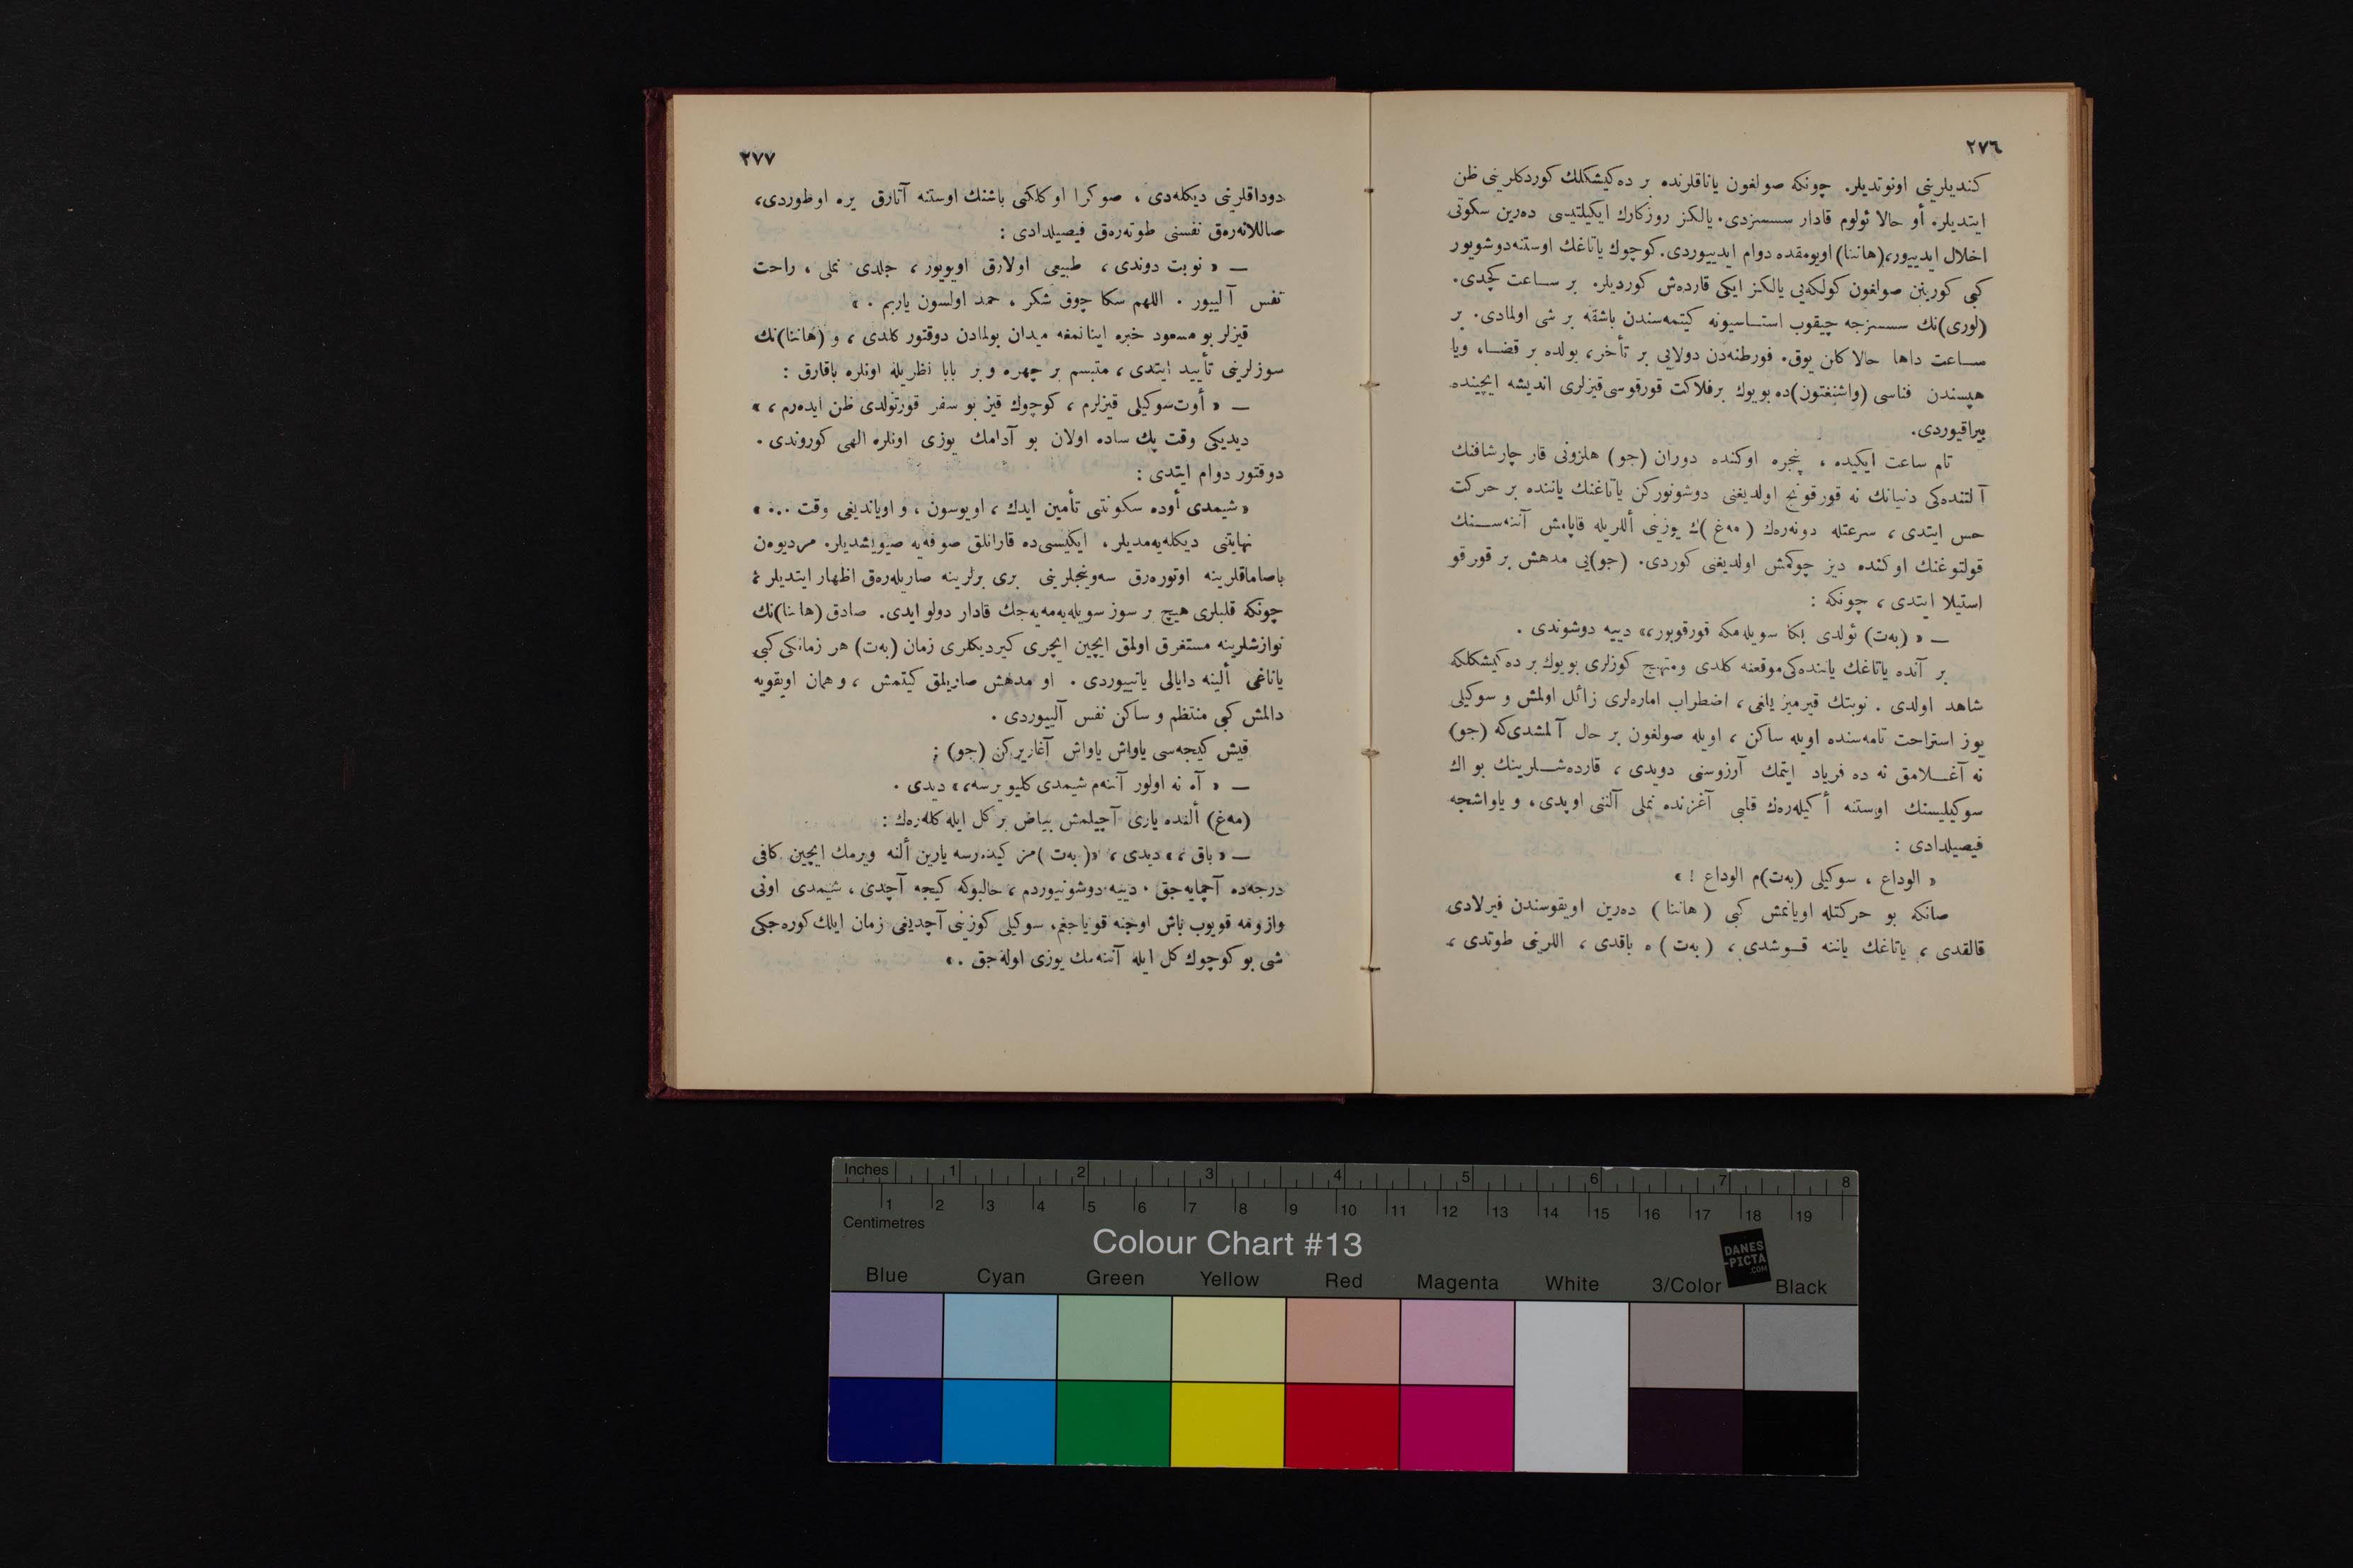 ٢٧٦
كنديلرينى اونوتديلر. چونكه صولغون ياناقلرنده بر ده‌كيشكلك كوردكلرينى ظن
ايتديلر. أو حالا ئولوم قادار سسسزدى. يالكز روزكارك ايكيلتيسى ده‌رين سكوتى
اخلال ايدييور، (هاننا) اويومقده دوام ايدييوردى. كوچوك ياتاغك اوستنه دوشويور
كبى كورينن صولغون كولكه‌يى يالكز ايكى قارده‌ش كورديلر. بر ساعت كچدى.
(لورى)نك سسسزجه چيقوب استاسيونه كيتمه‌سندن باشقه بر شى اولمادى. بر
ساعت داها حالا كلن يوق. فورطنه‌دن دولايى بر تأخر، يولده بر قضا، ويا
هپسندن فناسى (واشنغتون)ده بويوك برفلاكت قورقوسى قيزلرى انديشه ايچينده
بيراقيوردى.
تام ساعت ايكيده ، پنجره اوكنده دوران (جو) هلزونى قار چارشافنك
آلتنده‌كى دنيانك نه قورقونج اولديغنى دوشونوركن ياتاغنك ياننده بر حركت
حس ايتدى ، سرعتله دونه‌رك (مه‌غ)ك يوزينى أللريله قاپامش آننه‌سنك
قولتوغنك اوكنده ديز چوكمش اولديغنى كوردى. (جو)يى مدهش بر قورقو
استيلا ايتدى ، چونكه :
— « (به‌ت) ئولدى بكا سويله‌مكه قورقويور،» دييه دوشوندى .
بر آنده ياتاغك ياننده‌كى موقعنه كلدى ومتهيج كوزلرى بويوك بر ده‌كيشكلكه
شاهد اولدى . نوبتك قيرميزيلغى ، اضطراب اماره‌لرى زائل اولمش و سوكيلى
يوز استراحت تامه‌سنده اويله ساكن ، اويله صولغون بر حال آلمشدى‌كه (جو)
نه آغلامق نه ده فرياد ايتمك آرزوسنى دويدى ، قارده‌شلرينك بو اك
سوكيليسنك اوستنه أكيله‌رك قلبى آغزنده نملى آلننى اوپدى ، و ياواشجه
فيصيلدادى :
« الوداع ، سوكيلى (به‌ت)م الوداع ! »
صانكه بو حركتله اويانمش كبى (هاننا) ده‌رين اويقوسندن فيرلادى
قالقدى ، ياتاغك ياننه قوشدى ، (به‌ت)ه باقدى ، اللرينى طوتدى ،
٢٧٧
دوداقلرينى ديكله‌دى ، صوكرا اوكلكنى باشنك اوستنه آتارق يره اوطوردى،
صاللانه‌رق نفسنى طوته‌رق فيصيلدادى :
— « نوبت دوندى ، طبيعى اولارق اويويور ، جلدى نملى ، راحت
نفس آلييور . اللهم سكا چوق شكر ، حمد اولسون ياربم . »
قيزلر بو مسعود خبره اينانمغه ميدان بولمادن دوقتور كلدى ، و (هاننا)نك
سوزلرينى تأييد ايتدى ، متبسم بر چهره وبر بابا نظريله اونلره باقارق :
— « أوت سوكيلى قيزلرم ، كوچوك قيز بو سفر قورتولدى ظن ايده‌رم ، »
ديديكى وقت پك ساده اولان بو آدامك يوزى اونلره الهى كوروندى .
دوقتور دوام ايتدى :
« شيمدى أوده سكونتى تأمين ايدك ، اويوسون ، و اوياندیغى وقت ... »
نهايتنى ديكله‌يه‌مديلر ، ايكيسى‌ده قارانلق صوفه‌يه صيويشديلر. مرديوه‌ن
باصاماقلرينه اوتوره‌رق سه‌وينجلرينى برى برلرينه صاريله‌رق اظهار ايتديلر ؛
چونكه قلبلرى هيچ بر سوز سويله‌يه‌مه‌يه‌جك قادار دولو ايدى. صادق (هاننا)نك
نوازشلرينه مستغرق اولمق ايچين ايچرى كيرديكلرى زمان (به‌ت) هر زمانكى كبى
ياناغى ألينه دايالى ياتييوردى . او مدهش صاريلمق كيتمش ، و همان اويقويه
دالمش كبى منتظم و ساكن نفس آلييوردى .
قيش كيجه‌سى ياواش ياواش آغاريركن (جو) ;
— « آه نه اولور آننه‌م شيمدى كليويرسه،» ديدى .
(مه‌غ) ألنده يارى آچيلمش بياض بر كل ايله كله‌رك :
— « باق ، » ديدى ، «(به‌ت)مز كيده‌رسه يارين ألنه ويرمك ايچين كافى
درجه‌ده آچمايه‌جق . دييه دوشونيوردم ، حالبوكه كيجه آچدى ، شيمدى اونى
وازومه قويوب باش اوجنه قوياجغم، سوكيلى كوزينى آچديغى زمان ايلك كوره‌جكى
شى بو كوچوك كل ايله آننه‌مك يوزى اوله‌جق . »
Inches 1 2 3 4 5 6 7 8
1 2 3 4 5 6 7 8 9 10 11 12 13 14 15 16 17 18 19
Centimetres
Colour Chart #13
DANES
-PICTA
.COM
Blue Cyan Green Yellow Red Magenta White 3/Color Black